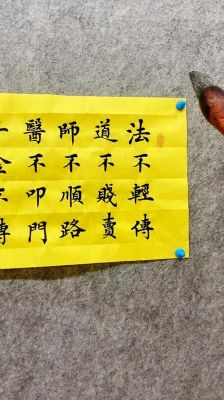 法不輕傳
道不賤賣
師不順路
醫不叩門